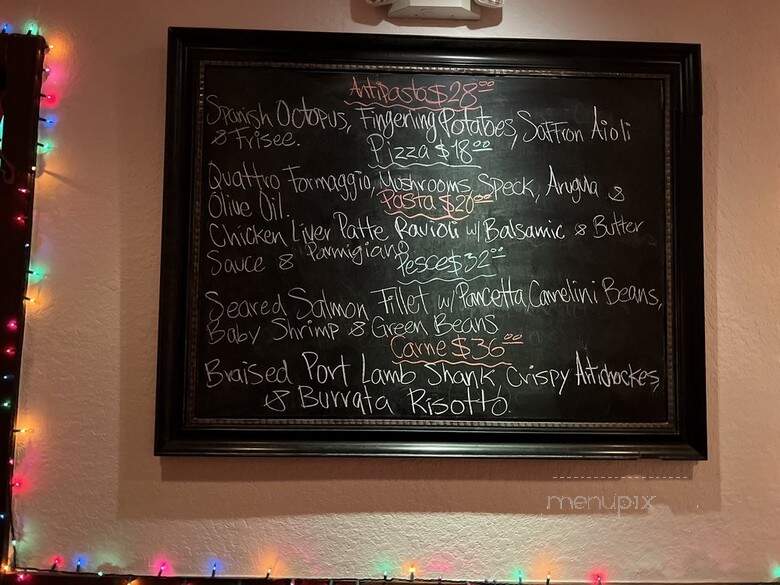 Antipasto $28⁰⁰
Spanish Octopus, Fingerling Potatoes, Saffron Aioli
& Frisee.
Pizza $18⁰⁰
Quattro Formaggio, Mushrooms, Speck, Arugula &
Olive Oil.
Pasta $20⁰⁰
Chicken Liver Patte Ravioli w/ Balsamic & Butter
Sauce & Parmigiano
Pesce $32⁰⁰
Seared Salmon Fillet w/ Pancetta, Cannelini Beans,
Baby Shrimp & Green Beans
Carne $36⁰⁰
Braised Port Lamb Shank, Crispy Artichockes,
& Burrata Risotto.
menupix